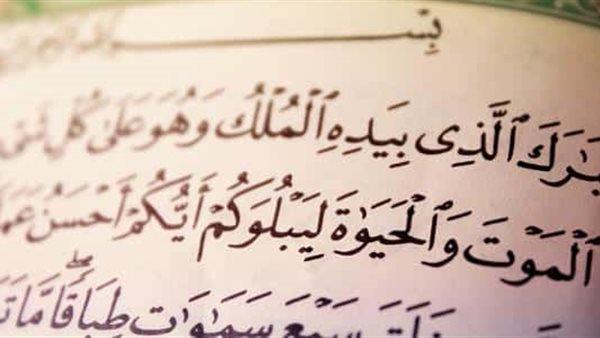 بِسْـــــمِ
تَبَٰرَكَ ٱلَّذِى بِيَدِهِ ٱلْمُلْكُ وَهُوَ عَلَىٰ كُلِّ شَىْ
ٱلْمَوْتَ وَٱلْحَيَوٰةَ لِيَبْلُوَكُمْ أَيُّكُمْ أَحْسَنُ عَمَلًا
خَلَقَ سَبْعَ سَمَٰوَٰتٍ طِبَاقًا ۖ مَّا تَ